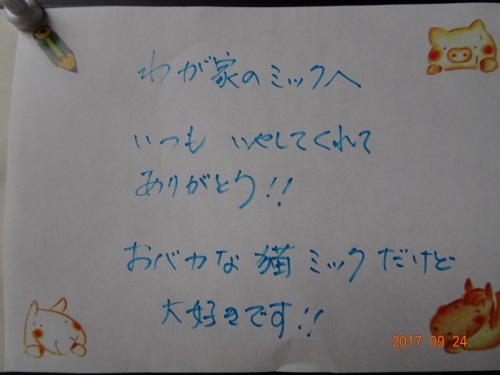 わが家のミックへ
いつも いやしてくれて
ありがとう!!
おバカな 猫 ミック だけど
大好きです!!
2017 09 24